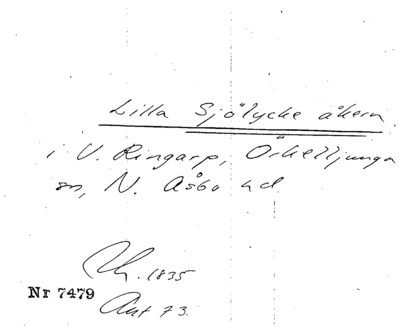 Lilla Sjölycke åkern
i V. Ringarp, Örkelljunga
sn, N. Åsbo hd
1835
Nr 7479
Akt 73.